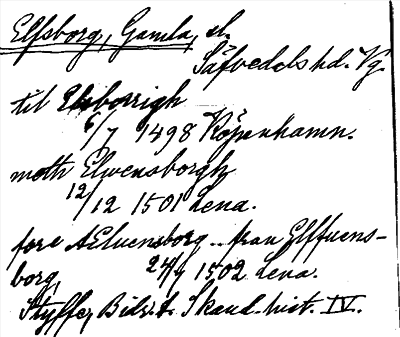 Elfsborg, Gamla, sl.
Säfvedals hd. Vg.
til Elsborrigh
6/7 1498 Köpenhamn.
moth Elwensborgh
12/12 1501 Lena.
fore AElvensborg .. fran Elffuens-
borg, 24/4 1502 Lena.
Styffe, Bidr. t. Skand. hist. IV.